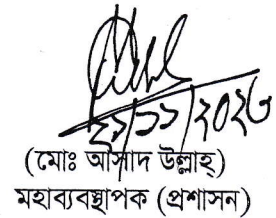 ২১/১১/২০২৩
(মোঃ আসাদ উল্লাহ্)
মহাব্যবস্থাপক (প্রশাসন)